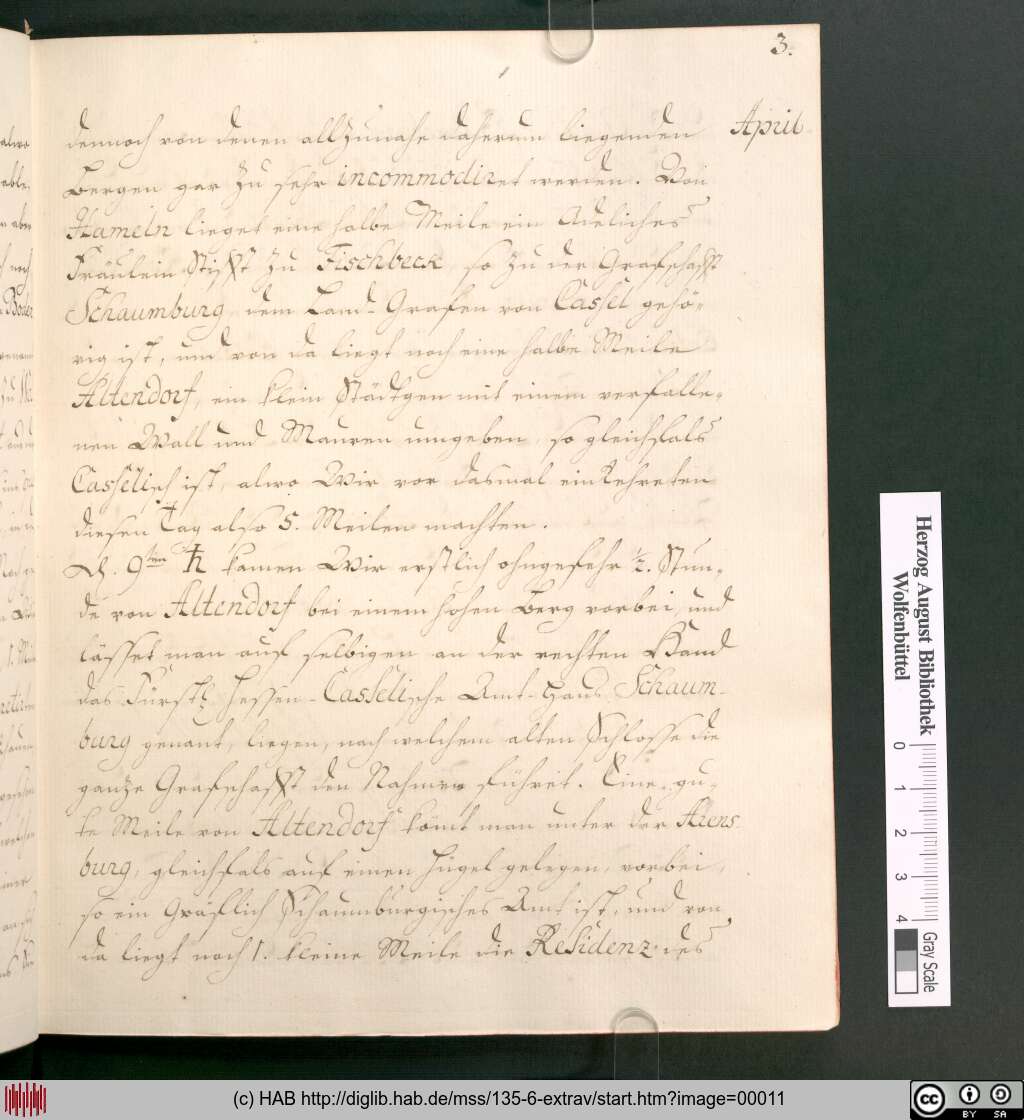 3.
April
dennoch von denen allzunahe daherum liegenden
Bergen gar zu sehr incommodiret werden. Von
Hameln lieget eine halbe Meile ein Adeliches
Fräulein Stifft zu Fischbeck, so zu der Grafschafft
Schaumburg dem Land-Grafen von Cassel gehö-
rig ist, und von da liegt noch eine halbe Meile
Altendorf, ein klein Städtgen mit einem verfalle-
nen Wall und Mauren umgeben, so gleichfals
Casselisch ist, alwo Wir vor dasmal einkehreten
diesen Tag also 5. Meilen machten.
D. 9ten ♄ kamen Wir erstlich ohngefehr ½. Stun-
de von Altendorf bei einem hohen Berg vorbei, und
lässet man auf selbigen an der rechten Hand
das Fürstl. Hessen-Casselische Amt-Haus Schaum-
burg genant, liegen, nach welchem alten Schlosse die
ganze Grafschafft den Nahmen führet. Eine gu-
te Meile von Altendorf kömt man unter der Arens
burg, gleichfals auf einen Hügel gelegen, vorbei,
so ein Gräflich Schaumburgisches Amt ist, und von
da liegt noch 1. kleine Meile die Residenz des
Herzog August Bibliothek
Wolfenbüttel
0 1 2 3 4
Gray Scale
(c) HAB http://diglib.hab.de/mss/135-6-extrav/start.htm?image=00011
cc BY SA